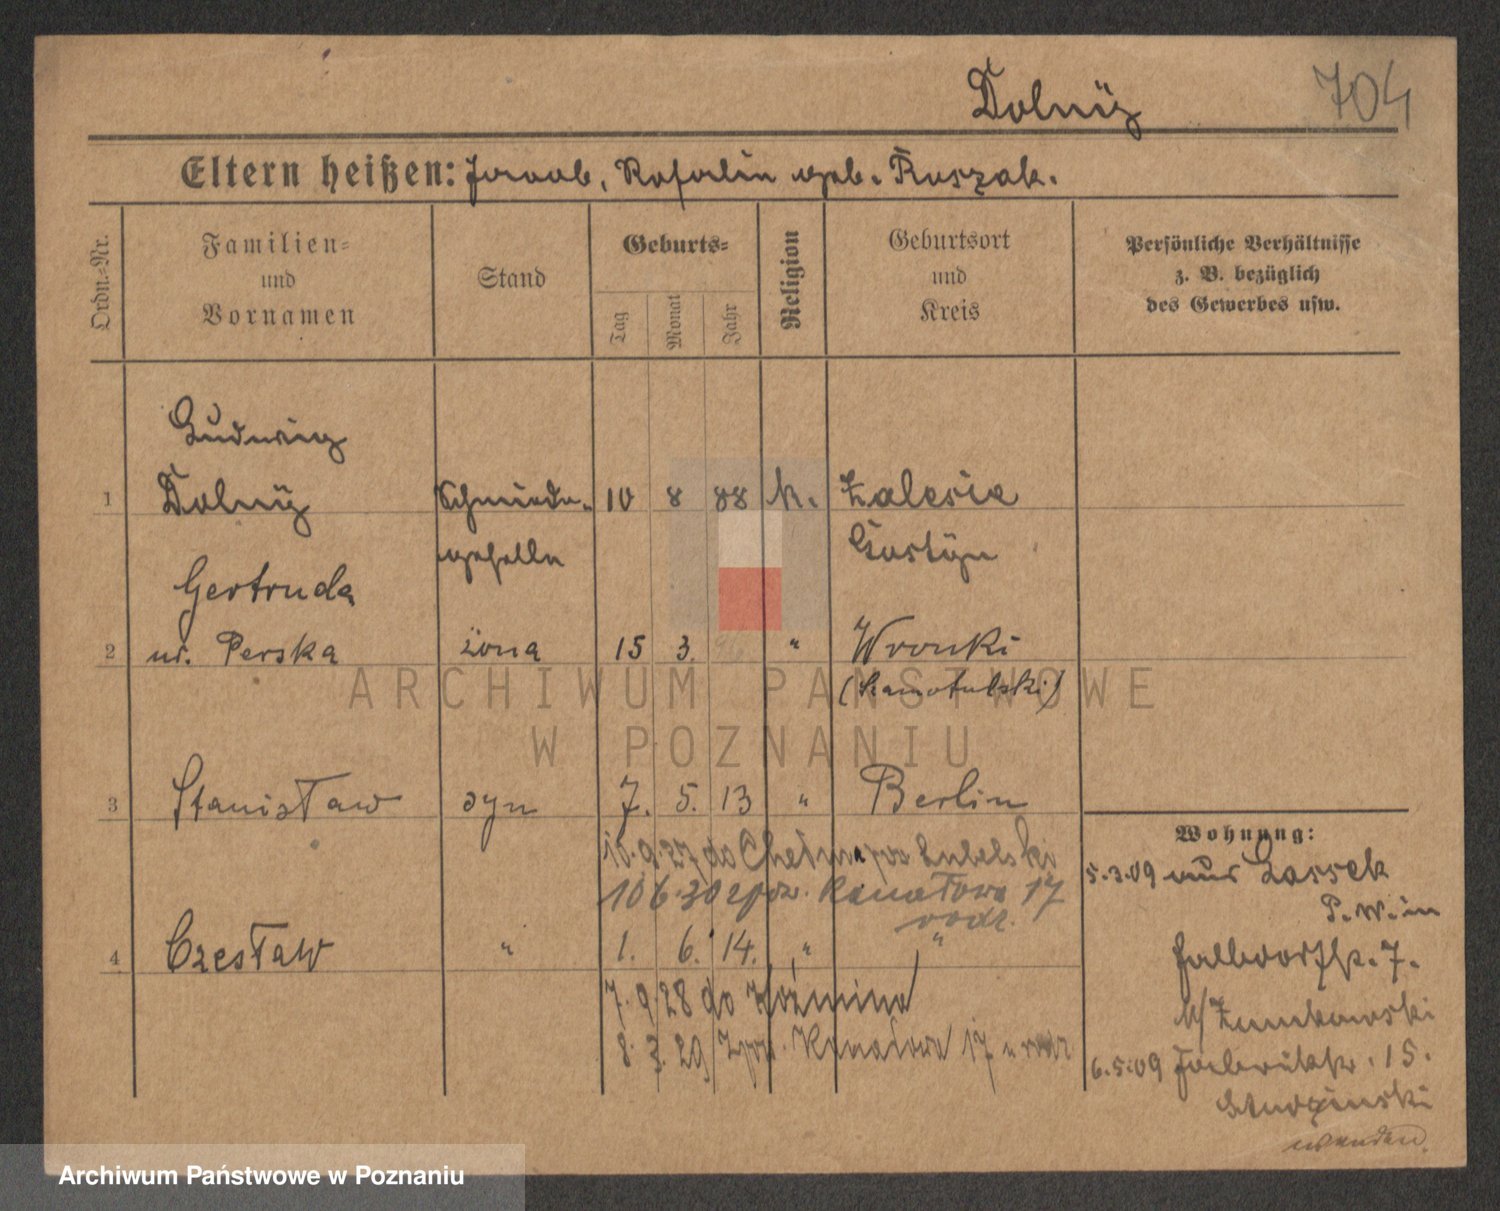 Dolnÿ
704
Eltern heißen: Jacob, Rosalie geb. Ruszak.
Ordn.-Nr.
Familien-
und
Vornamen
Stand
Geburts-
Tag
Monat
Jahr
Religion
Geburtsort
und
Kreis
Persönliche Verhältnisse
z. B. bezüglich
des Gewerbes usw.
Ludwig
1 Dolnÿ Schmiede- 10 8 88 k. Zalesie
geselle Gostÿn
Gertruda
2 ur. Perska żona 15 3. " Wronki
(Szamotulski)
3 Stanisław syn 7. 5. 13 " Berlin
10.9.27 do Chełm Lubelski
10 6.30 z poz. Kanałowa 17
rodz.
4 Czesław " 1. 6. 14. " "
7.9.28 do Koźmina
8.3.29 Kanałowa 17 u rodz
Wohnung:
5.3.09 aus Lassek
P. W. in
7.
b/
6.5.09 Fabrikstr. 15.
wenden.
ARCHIWUM PAŃSTWOWE
W POZNANIU
Archiwum Państwowe w Poznaniu